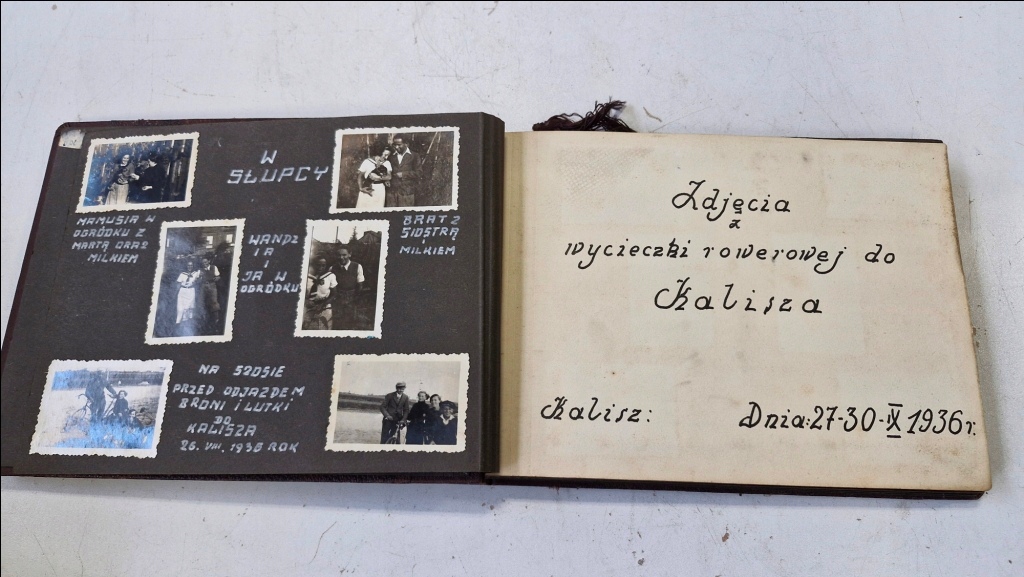 W
SŁUPCY
MAMUSIA W
OGRÓDKU Z
MARTĄ ORAZ
MILKIEM
BRAT Z
SIOSTRĄ
I
MILKIEM
WANDZ
IA
I
JA W
OGRÓDKU
NA SZOSIE
PRZED ODJAZDEM
BRONI I LUTKI
DO
KALISZA
26. VIII. 1936 ROK
Zdjęcia
z
wycieczki rowerowej do
Kalisza
Kalisz: Dnia: 27-30-IX 1936 r.